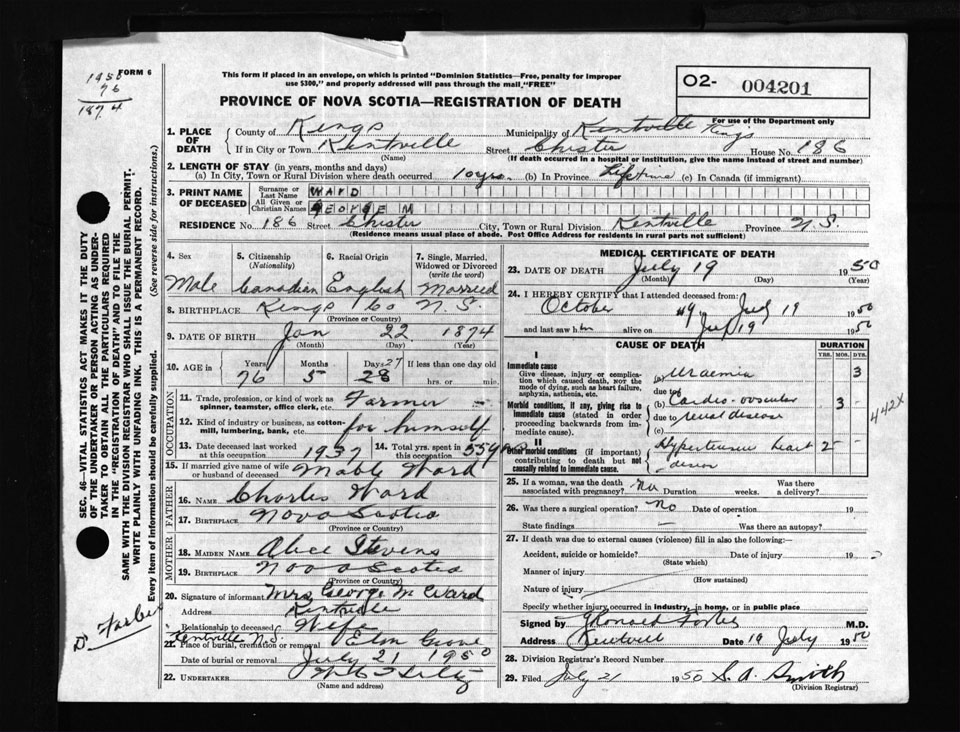 1950
76
1874
FORM 6
This form if placed in an envelope, on which is printed "Dominion Statistics—Free, penalty for improper
use $300," and properly addressed will pass through the mail "FREE"
PROVINCE OF NOVA SCOTIA—REGISTRATION OF DEATH
O2- 004201
For use of the Department only
1. PLACE OF DEATH
County of Kings Municipality of Kentville Kings
If in City or Town Kentville Street Chester House No. 186
(Name) (If death occurred in a hospital or institution, give the name instead of street and number)
2. LENGTH OF STAY (in years, months and days)
(a) In City, Town or Rural Division where death occurred 10 yrs. (b) In Province Lifetime (c) In Canada (if immigrant)
3. PRINT NAME OF DECEASED
Surname or Last Name WARD
All Given or Christian Names GEORGE M
RESIDENCE No. 186 Street Chester City, Town or Rural Division Kentville Province N.S.
(Residence means usual place of abode. Post Office Address for residents in rural parts not sufficient)
4. Sex 5. Citizenship (Nationality) 6. Racial Origin 7. Single, Married, Widowed or Divorced (write the word)
Male Canadian English Married
8. BIRTHPLACE Kings Co N.S.
(Province or Country)
9. DATE OF BIRTH Jan 22 1874
(Month) (Day) (Year)
10. AGE in Years Months Days If less than one day old
76 5 28 27 hrs. or min.
OCCUPATION
11. Trade, profession, or kind of work as spinner, teamster, office clerk, etc. Farmer -
12. Kind of industry or business, as cotton-mill, lumbering, bank, etc. for himself
13. Date deceased last worked at this occupation 1937 14. Total yrs. spent in this occupation 55 yrs
15. If married give name of wife or husband of deceased Mable Ward
FATHER
16. NAME Charles Ward
17. BIRTHPLACE Nova Scotia
(Province or Country)
MOTHER
18. MAIDEN NAME Alice Stevens
19. BIRTHPLACE Nova Scotia
(Province or Country)
20. Signature of informant Mrs. George M Ward
Address Kentville
Relationship to deceased Wife
Kentville N.S.
21. Place of burial, cremation or removal Elm Grove
Date of burial or removal July 21 1950
22. UNDERTAKER
(Name and address)
MEDICAL CERTIFICATE OF DEATH
23. DATE OF DEATH July 19 1950
(Month) (Day) (Year)
24. I HEREBY CERTIFY that I attended deceased from:
October 49 July 19 1950
and last saw him alive on July 19 1950
CAUSE OF DEATH DURATION
YRS. MOS. DYS.
I
Immediate cause
Give disease, injury or complication which caused death, NOT the mode of dying, such as heart failure, asphyxia, asthenia, etc.
(a) Uraemia 3
due to
Morbid conditions, if any, giving rise to immediate cause (stated in order proceeding backwards from immediate cause).
(b) Cardio-vascular 3 -
due to renal disease
(c)
442X
II
Other morbid conditions (if important) contributing to death but not causally related to immediate cause.
Hypertensive heart 2 -
disease
25. If a woman, was the death associated with pregnancy? No Duration weeks. Was there a delivery?
26. Was there a surgical operation? No Date of operation 19
State findings — Was there an autopsy?
27. If death was due to external causes (violence) fill in also the following:—
Accident, suicide or homicide? Date of injury 19
(State which)
Manner of injury
(How sustained)
Nature of injury
Specify whether injury occurred in industry, in home, or in public place
Signed by Donald Forbes M.D.
Address Kentville Date 19 July 1950
28. Division Registrar's Record Number
29. Filed July 21 1950 S. A. Smith
(Division Registrar)
SEC. 46—VITAL STATISTICS ACT MAKES IT THE DUTY
OF THE UNDERTAKER OR PERSON ACTING AS UNDER-
TAKER TO OBTAIN ALL THE PARTICULARS REQUIRED
IN THE "REGISTRATION OF DEATH" AND TO FILE THE
SAME WITH THE DIVISION REGISTRAR WHO SHALL ISSUE THE BURIAL PERMIT.
WRITE PLAINLY WITH UNFADING INK. THIS IS A PERMANENT RECORD.
Every item of information should be carefully supplied. (See reverse side for instructions.)
D. Forbes